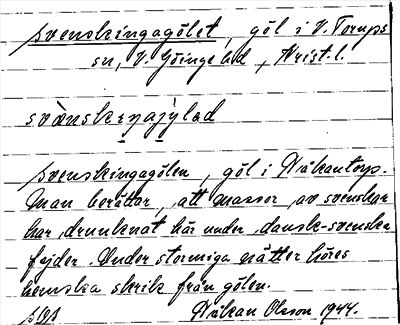 svenskingagölet, göl i V. Torups
sn, V. Göinge hd, Krist. l.
svenskingagölen, göl i Håkantorp.
Man berättar, att massor av svenskar
har drunknat här under dansk-svenska
fejder. Under stormiga nätter höres
hemska skrik från gölen.
Håkan Olsson 1944.